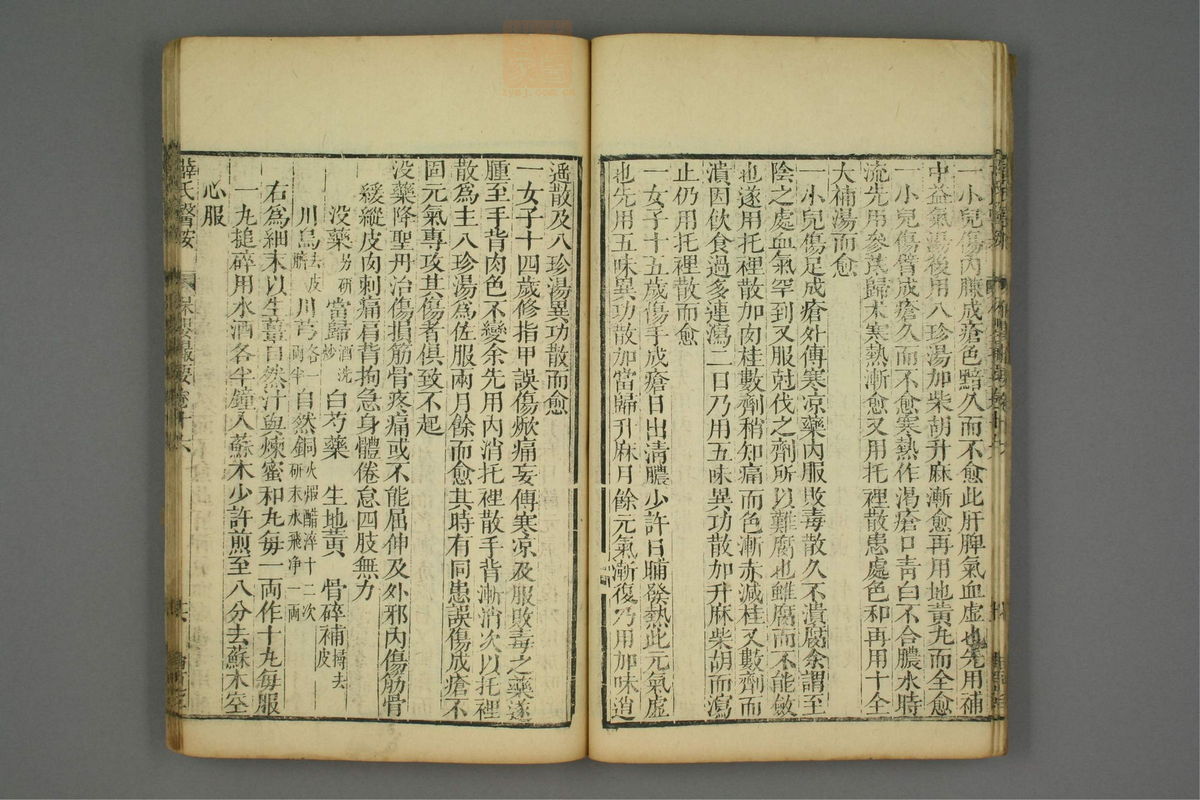 一小兒傷內臁成瘡色黯久而不愈此肝脾氣血虛也先用補
中益氣湯後用八珍湯加柴胡升麻漸愈再用地黃丸而全愈
一小兒傷臂成瘡久而不愈寒熱作渴瘡口青白不合膿水時
流先用參芪歸术寒熱漸愈又用托裡散患處色和再用十全
大補湯而愈
一小兒傷足成瘡外傅寒凉藥內服敗毒散久不潰腐余謂至
陰之處血氣罕到又服尅伐之劑所以難腐也雖腐而不能斂
也遂用托裡散加肉桂數劑稍知痛而色漸赤減桂又數劑而
潰因飲食過多連瀉二日乃用五味異功散加升麻柴胡而瀉
止仍用托裡散而愈
一女子十五歲傷手成瘡日出清膿少許日晡發熱此元氣虛
也先用五味異功散加當歸升麻月餘元氣漸復乃用加味逍
遥散及八珍湯異功散而愈
一女子十四歲修指甲誤傷焮痛妄傅寒凉及服敗毒之藥遂
腫至手背肉色不變余先用內消托裡散手背漸消次以托裡
散為主八珍湯為佐服兩月餘而愈其時有同患誤傷成瘡不
固元氣專攻其傷者俱致不起
没藥降聖丹治傷損筋骨疼痛或不能屈伸及外邪內傷筋骨
緩縱皮肉刺痛肩背拘急身體倦怠四肢無力
没藥另研 當歸酒洗炒 白芍藥 生地黃 骨碎補撏去皮
川烏去皮臍 川芎各一兩半 自然銅火煆醋淬十二次研末水飛净一兩
右為細末以生薑自然汁與煉蜜和丸每一兩作十丸每服
一丸搥碎用水酒各半鐘入蘇木少許煎至八分去蘇木空
心服
薛氏醫按 保嬰撮要卷十六